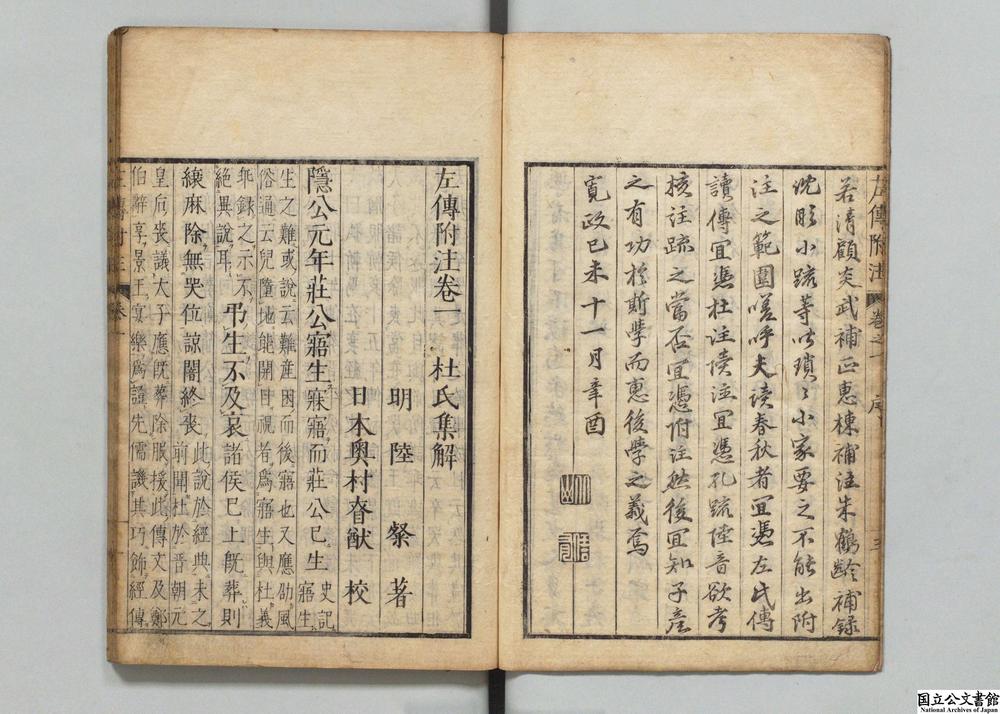 若清顧炎武補正惠棟補注朱鶴齡補錄
沈彤小疏等皆瑣〻小家要之不能出附
注之範圍嗟呼夫讀春秋者宜憑左氏傳
讀傳宜憑杜注讀注宜憑孔疏陸音欲考
核注疏之當否宜憑附注然後宜知子產
之有功於斯學而惠後學之義焉
寬政己未十一月辛酉
左傳附注 卷之一 序 三
左傳附注卷一 杜氏集解
明 陸粲 著
日本奧村眘猷 校
隱公元年莊公寤生寐寤而莊公已生 史記寤生
生之難或說云難產困而後寤也又應劭風
俗通云兒墮地能開目視者爲寤生與杜義
乖錄之示不
絕異說耳 弔生不及哀諸侯已上旣葬則
縗麻除無哭位諒闇終喪 此說於經典未之
前聞杜於晉朝元
皇后喪議太子應旣葬除服援此傳文及鄭
伯辭享景王宴樂爲證先儒譏其巧飾經傳
左傳附注 卷一 一
国立公文書館
National Archives of Japan